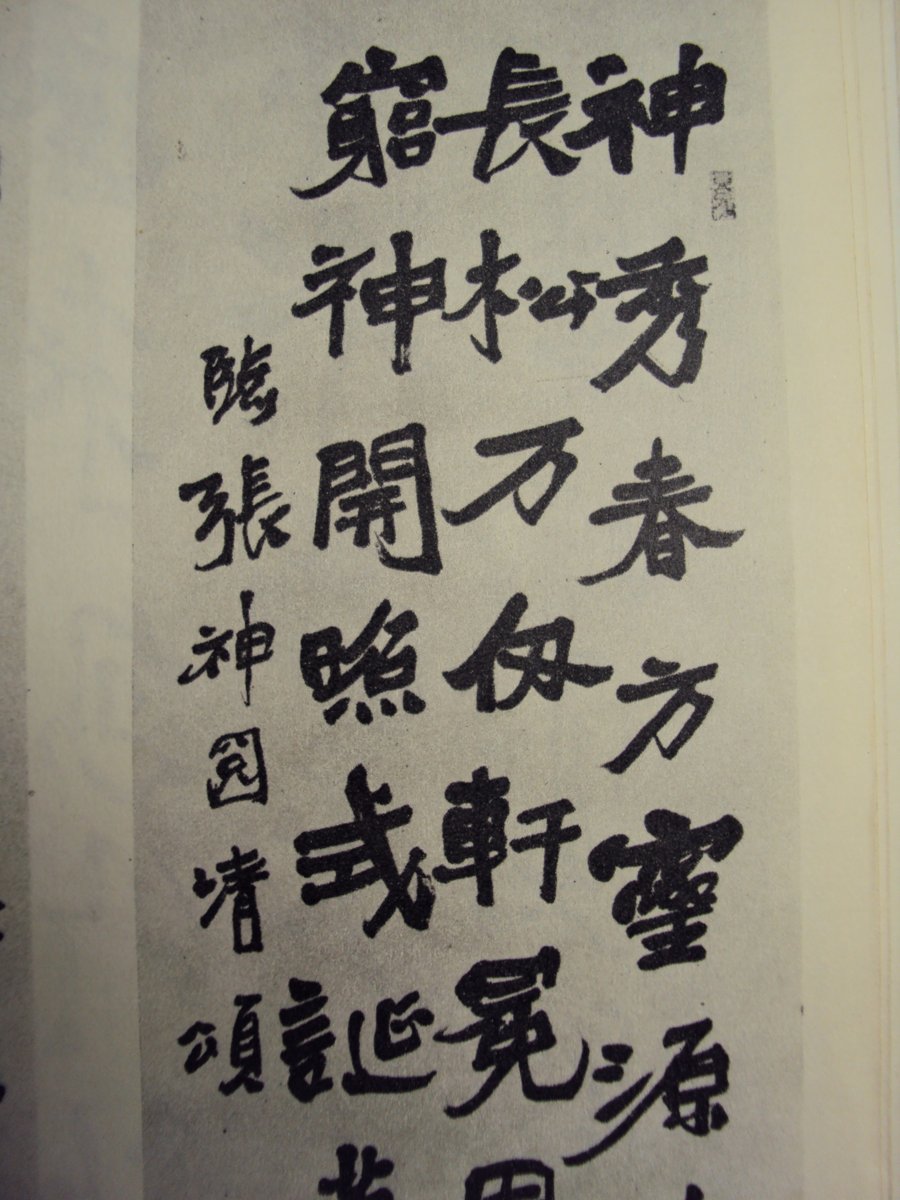 神秀春方靈源
長松万仞軒冕
窮神開照式誕
臨張神囧清頌